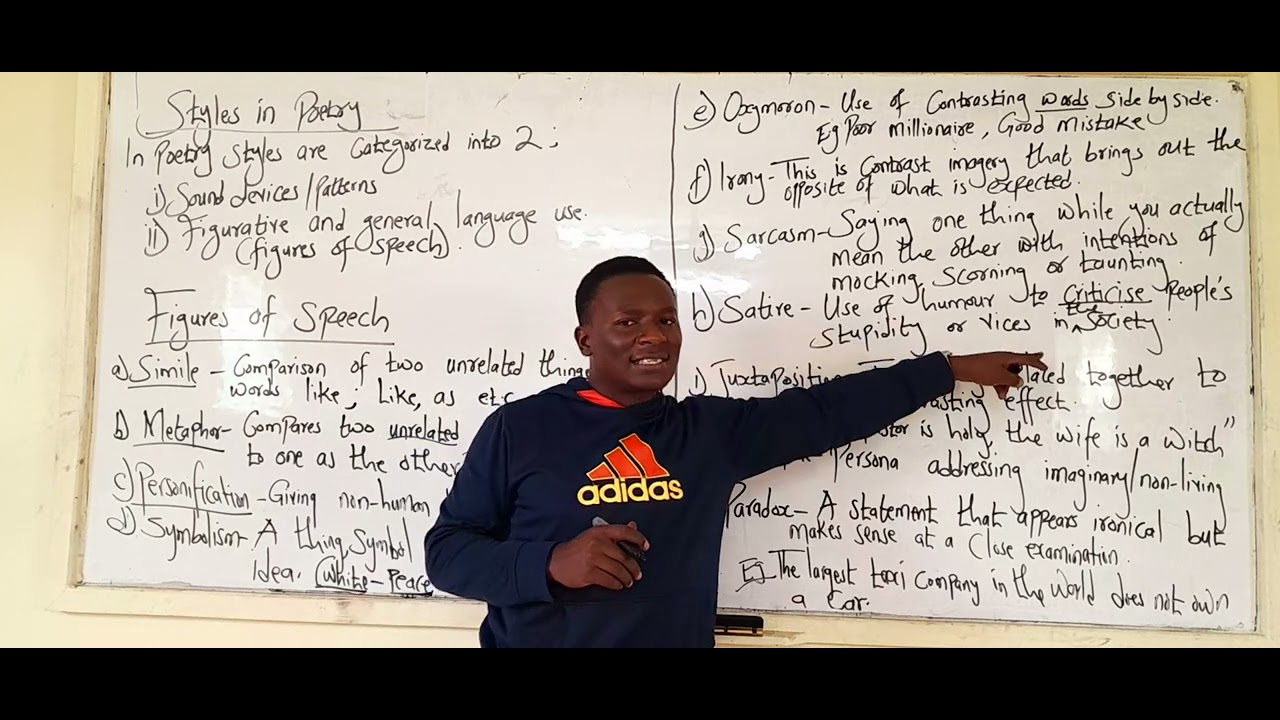 Styles in Poetry
In Poetry styles are categorized into 2;
i) Sound devices/Patterns
ii) Figurative and general language use.
(figures of speech).
Figures of Speech
a) Simile - Comparison of two unrelated things
words like; Like, as etc
b) Metaphor - Compares two unrelated
to one as the other
c) Personification - Giving non-human
d) Symbolism - A thing, symbol
Idea. (White - Peace
e) Oxymoron - Use of Contrasting words side by side.
Eg Poor millionaire, Good Mistake
f) Irony - This is contrast imagery that brings out the
opposite of what is expected.
g) Sarcasm - Saying one thing while you actually
mean the other with intentions of
mocking, scorning or taunting.
h) Satire - Use of humour to criticise People's
stupidity or vices in the society.
i) Juxtaposition together to
effect.
is holy, the wife is a witch"
Persona addressing imaginary/non-living
Paradox - A statement that appears ironical but
makes sense at a close examination.
Eg The largest taxi company in the world does not own
a car.
adidas